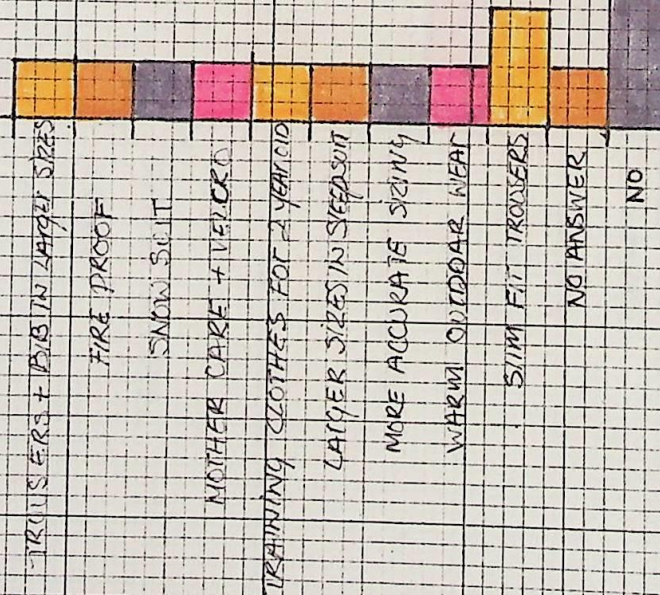 TROUSERS + BIB IN LARGER SIZES
FIRE PROOF
SNOW SUIT
MOTHER CARE + VELCRO
TRAINING CLOTHES FOR 2 YEAR OLD
LARGER SIZES IN SLEEPSUIT
MORE ACCURATE SIZING
WARM OUTDOAR WEAR
SLIM FIT TROUSERS
NO ANSWER
NO